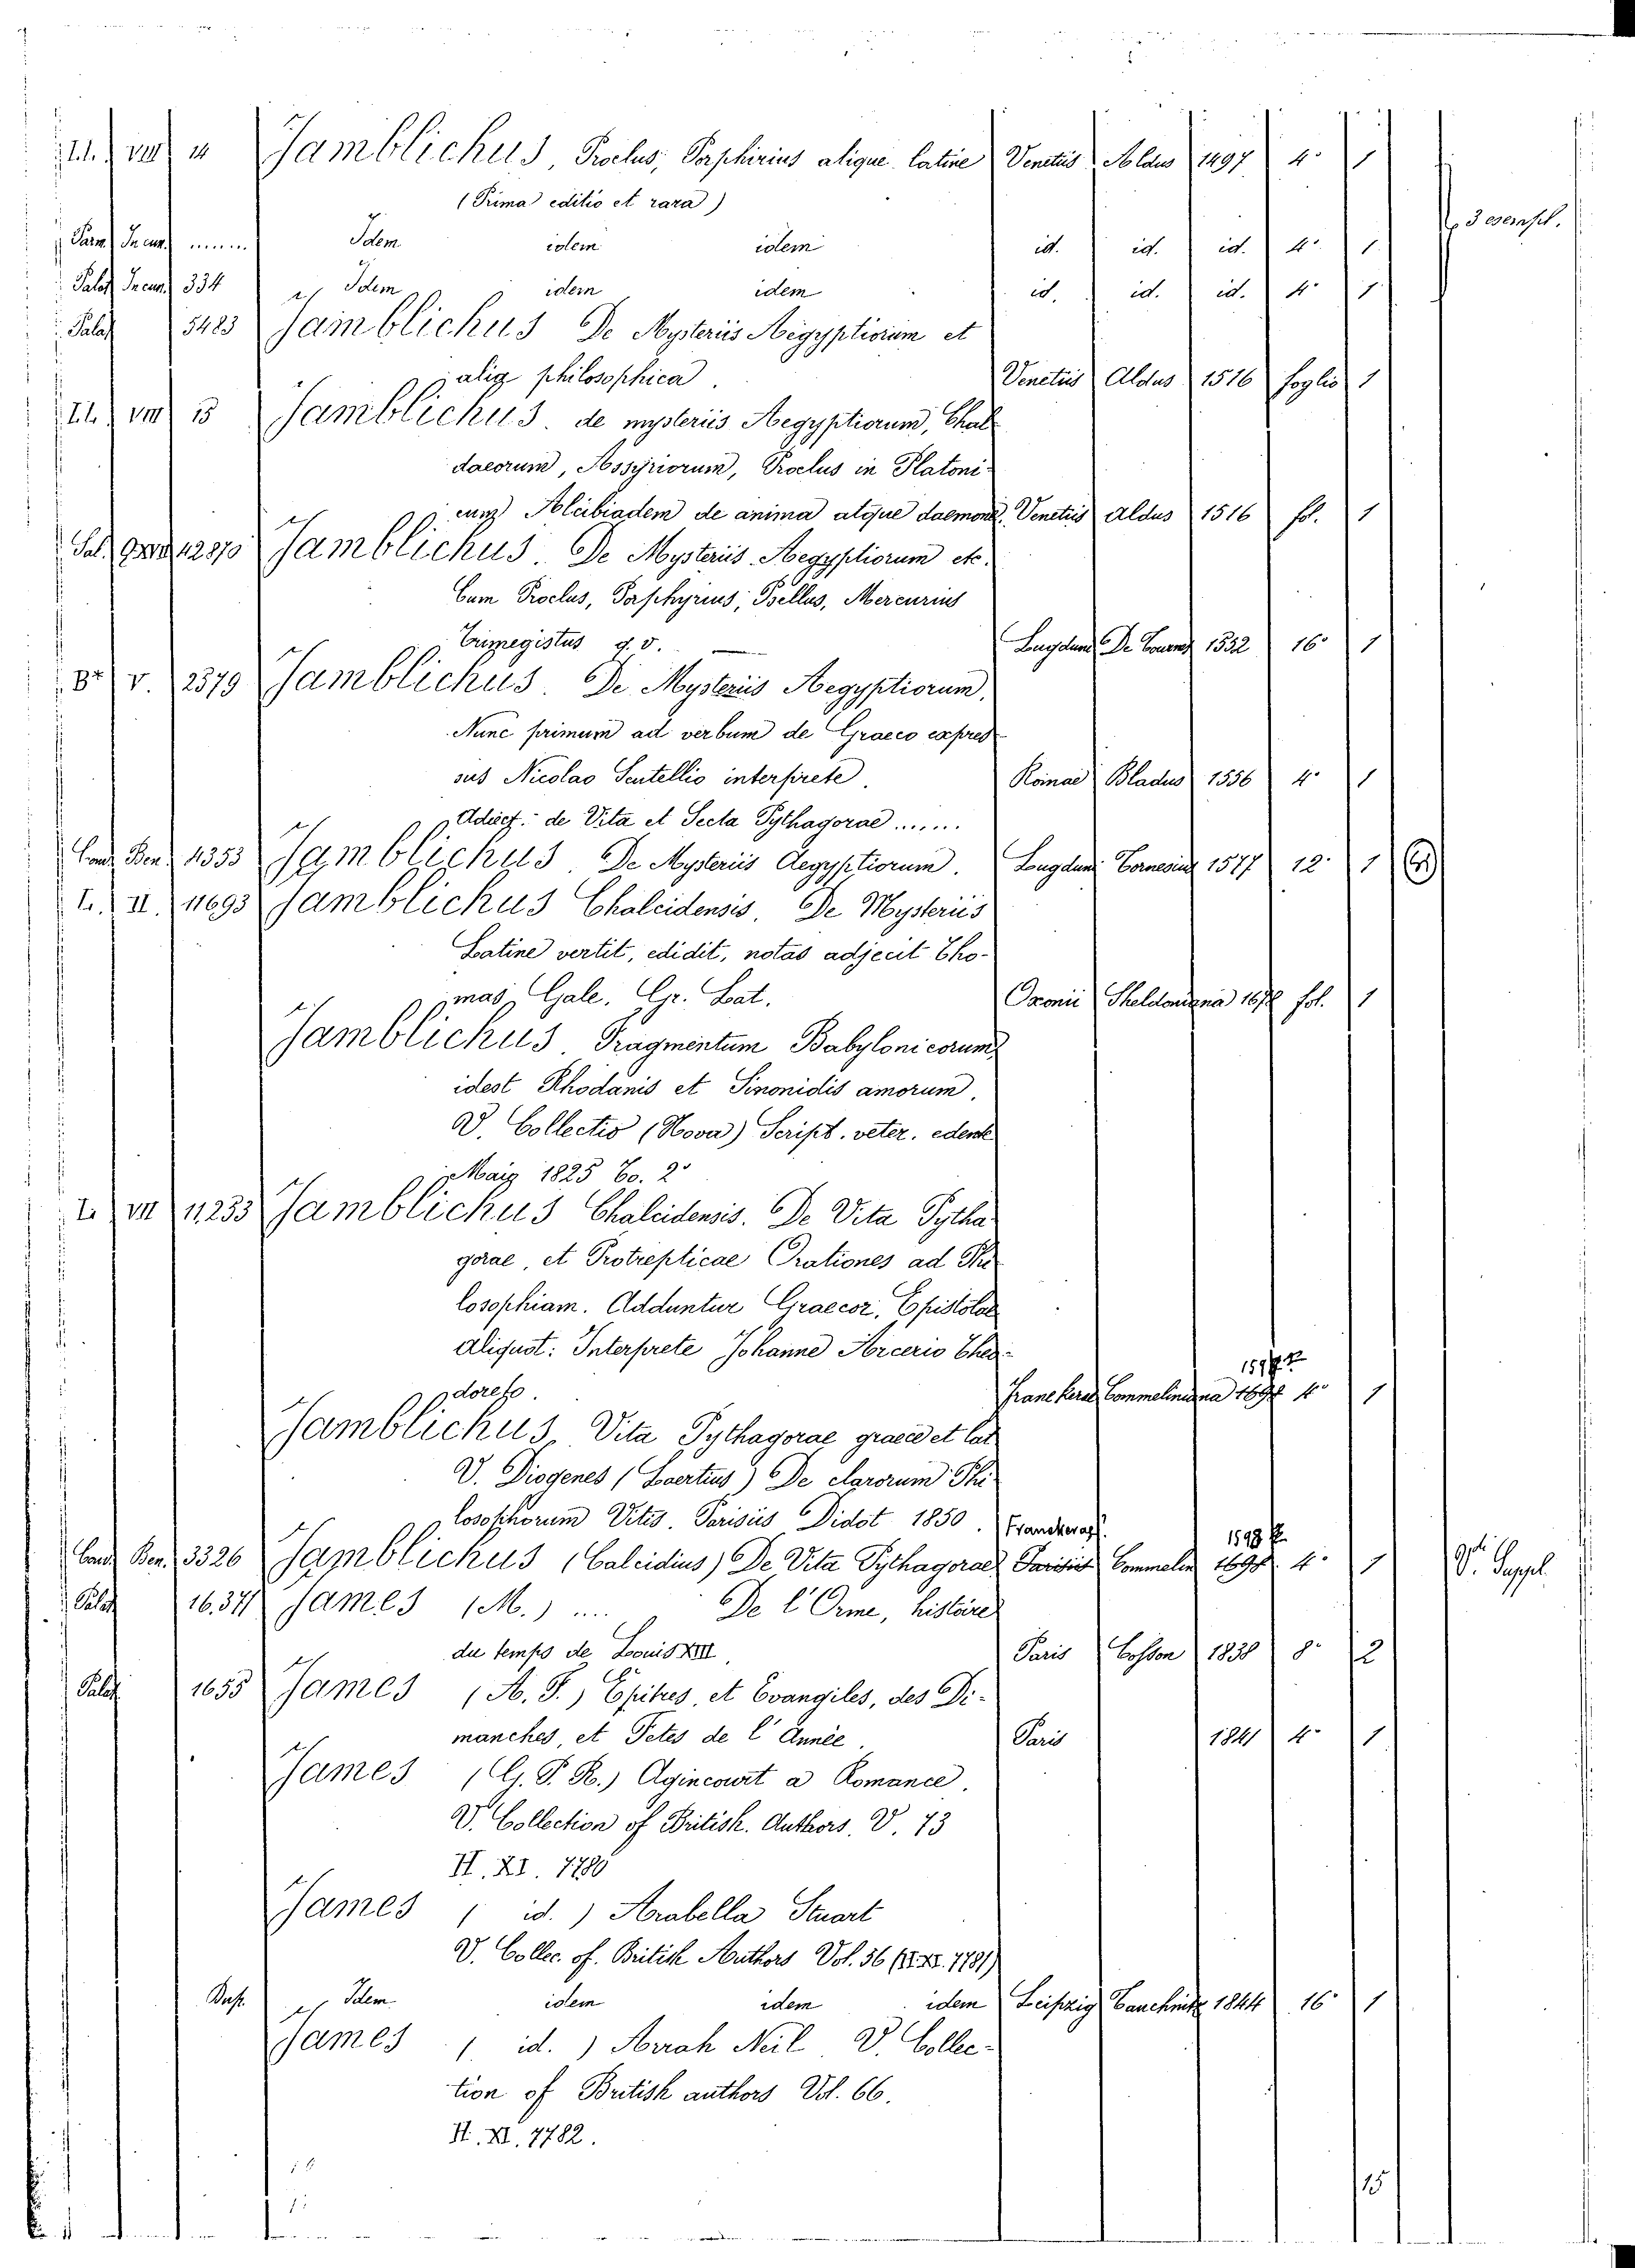 I.I. VIII 14 Jamblichus, Proclus, Porphirius atique latine Venetiis Aldus 1497 4° 1
(Prima editio et rara)
3 esempl.
Parm. Incun. Idem idem idem id. id. id. 4° 1
Palat. Incun. 334 Idem idem idem id. id. id. 4° 1
Palat. 5483 Jamblichus De Mysteriis Aegyptiorum et
alia philosophica. Venetiis Aldus 1516 foglio 1
I.I. VIII 15 Jamblichus. de mysteriis Aegyptiorum, Chal
daeorum, Assyriorum, Proclus in Platoni-
cum Alcibiadem de anima atque daemone. Venetiis Aldus 1516 fol. 1
Sal. 12870 Jamblichus. De Mysteriis Aegyptiorum etc.
Cum Proclus, Porphyrius, Psellus, Mercurius
Trimegistus q. v. Lugduni De Tournes 1552 16° 1
Br. V. 2579 Jamblichus. De Mysteriis Aegyptiorum.
Nunc primum ad verbum de Graeco expres
sus Nicolao Scutellio interprete. Romae Bladus 1556 4° 1
Adiect: de Vita et Secta Pythagorae ......
Cond. Ben. 1353 Jamblichus. De Mysteriis Aegyptiorum. Lougduni 1577 12° 1
L. II. 11693 Jamblichus Chalcidensis. De Mysteriis
Latine vertit, edidit, notas adjecit Tho-
mas Gale. Gr. Lat. Oxonii Sheldoniana 1678 fol. 1
Jamblichus. Fragmentum Babylonicorum,
idest Rhodanis et Sinonidis amorum.
V. Collectio (Nova) Script. veter. edente
Maio 1825 To. 2°
L. VII 11,233 Jamblichus Chalcidensis. De Vita Pytha
gorae, et Protrepticae Orationes ad Phi
losophiam. Adduntur Graecor. Epistolae
aliquot: Interprete Johanne Arcerio Theo-
1598
doreto. Franekerae Commeliniana 4° 1
Jamblichus, Vita Pythagorae graece et lat
V. Diogenes (Laertius) De clarorum Phi
losophorum Vitis. Parisiis Didot 1850. Franckerae. 1598
Cond. Ben. 3326 Jamblichus (Calcidius) De Vita Pythagorae Parisiis Commelin 1698 4° 1 V. Suppl.
Palat. 16.371 James (M.) .... De l'Orme, histoire
du temps de Louis XIII. Paris Cosson 1838 8° 2
Palat. 1655 James (A. F.) Epitres, et Evangiles, des Di-
manches, et Fetes de l'Année. Paris 1841 4° 1
James (G. P. R.) Agincourt a Romance.
V. Collection of British. Authors. V. 73
II. XI. 7780
James ( id. ) Arabella Stuart
V. Collec. of. British Authors Vol. 36 (II. XI. 7781)
Idem idem idem idem Leipzig Tauchnitz 1844 16° 1
James ( id. ) Arrah Neil. V. Collec-
tion of British authors Vol. 66.
II. XI. 7782.
15